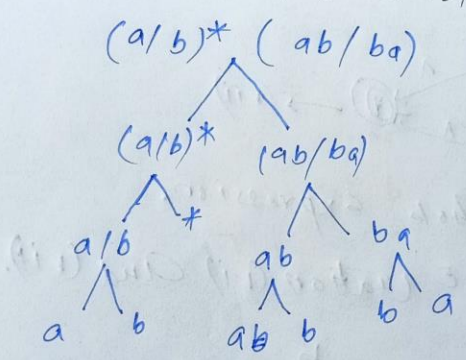 (a/b)* (ab/ba)
(a/b)* (ab/ba)
a/b * ab ba
a b ab b b a